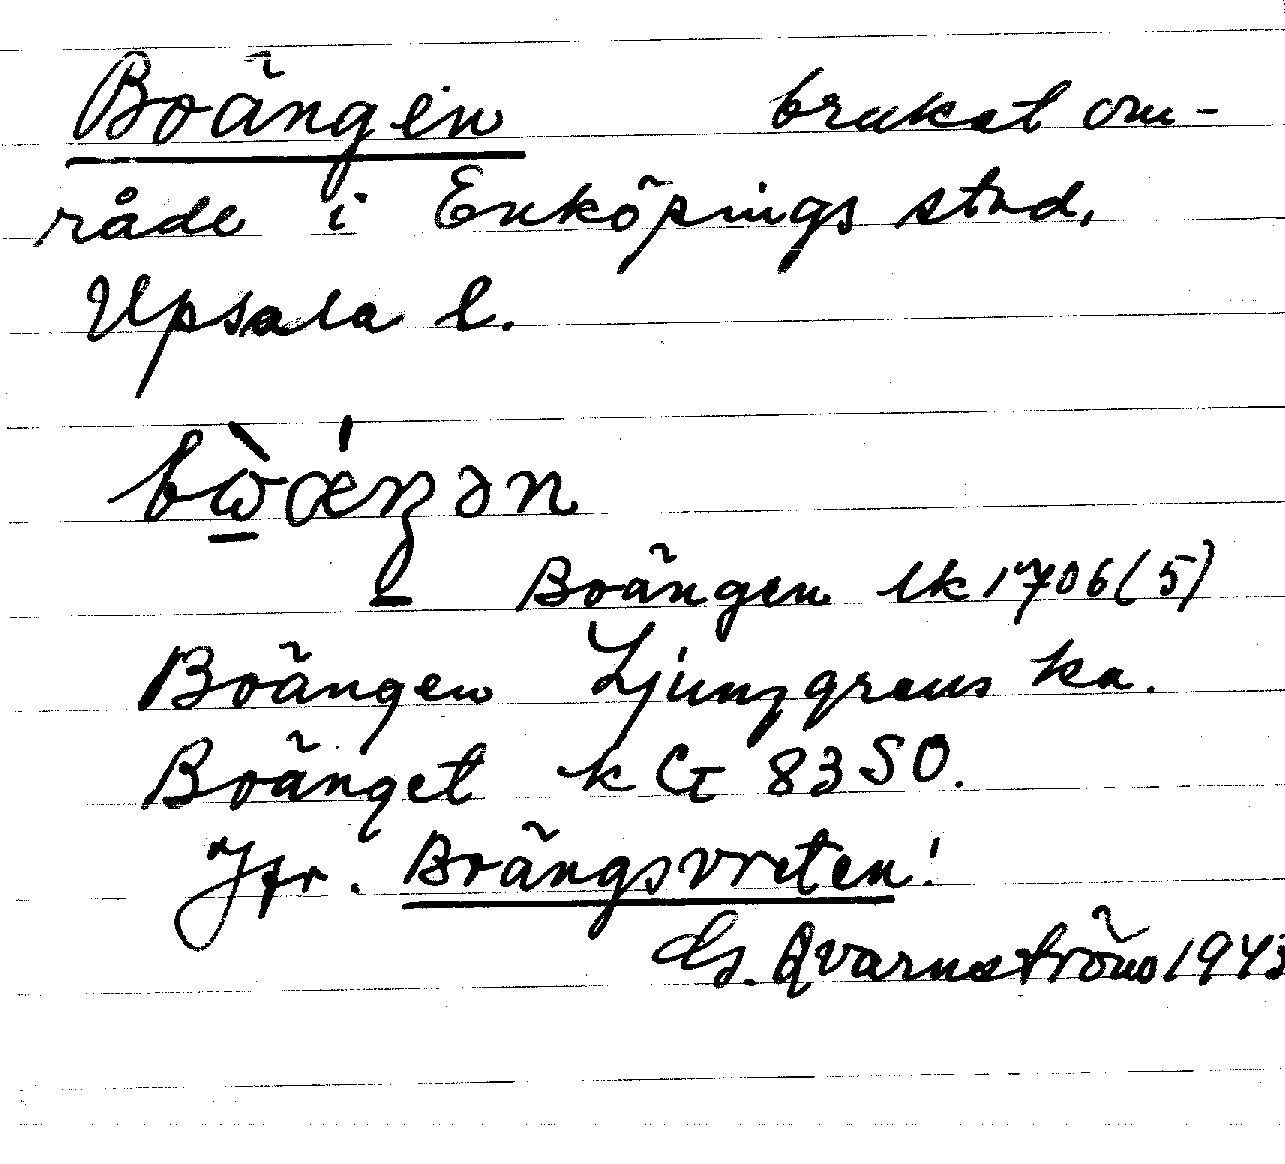 Boängen brukat om-
råde i Enköpings stad,
Upsala l.
Boängen lk 1706 (5)
Boängen Ljunggrens ka.
Boänget k G 8350.
Jfr. Boängsvreten!
G. Qvarnström 1943